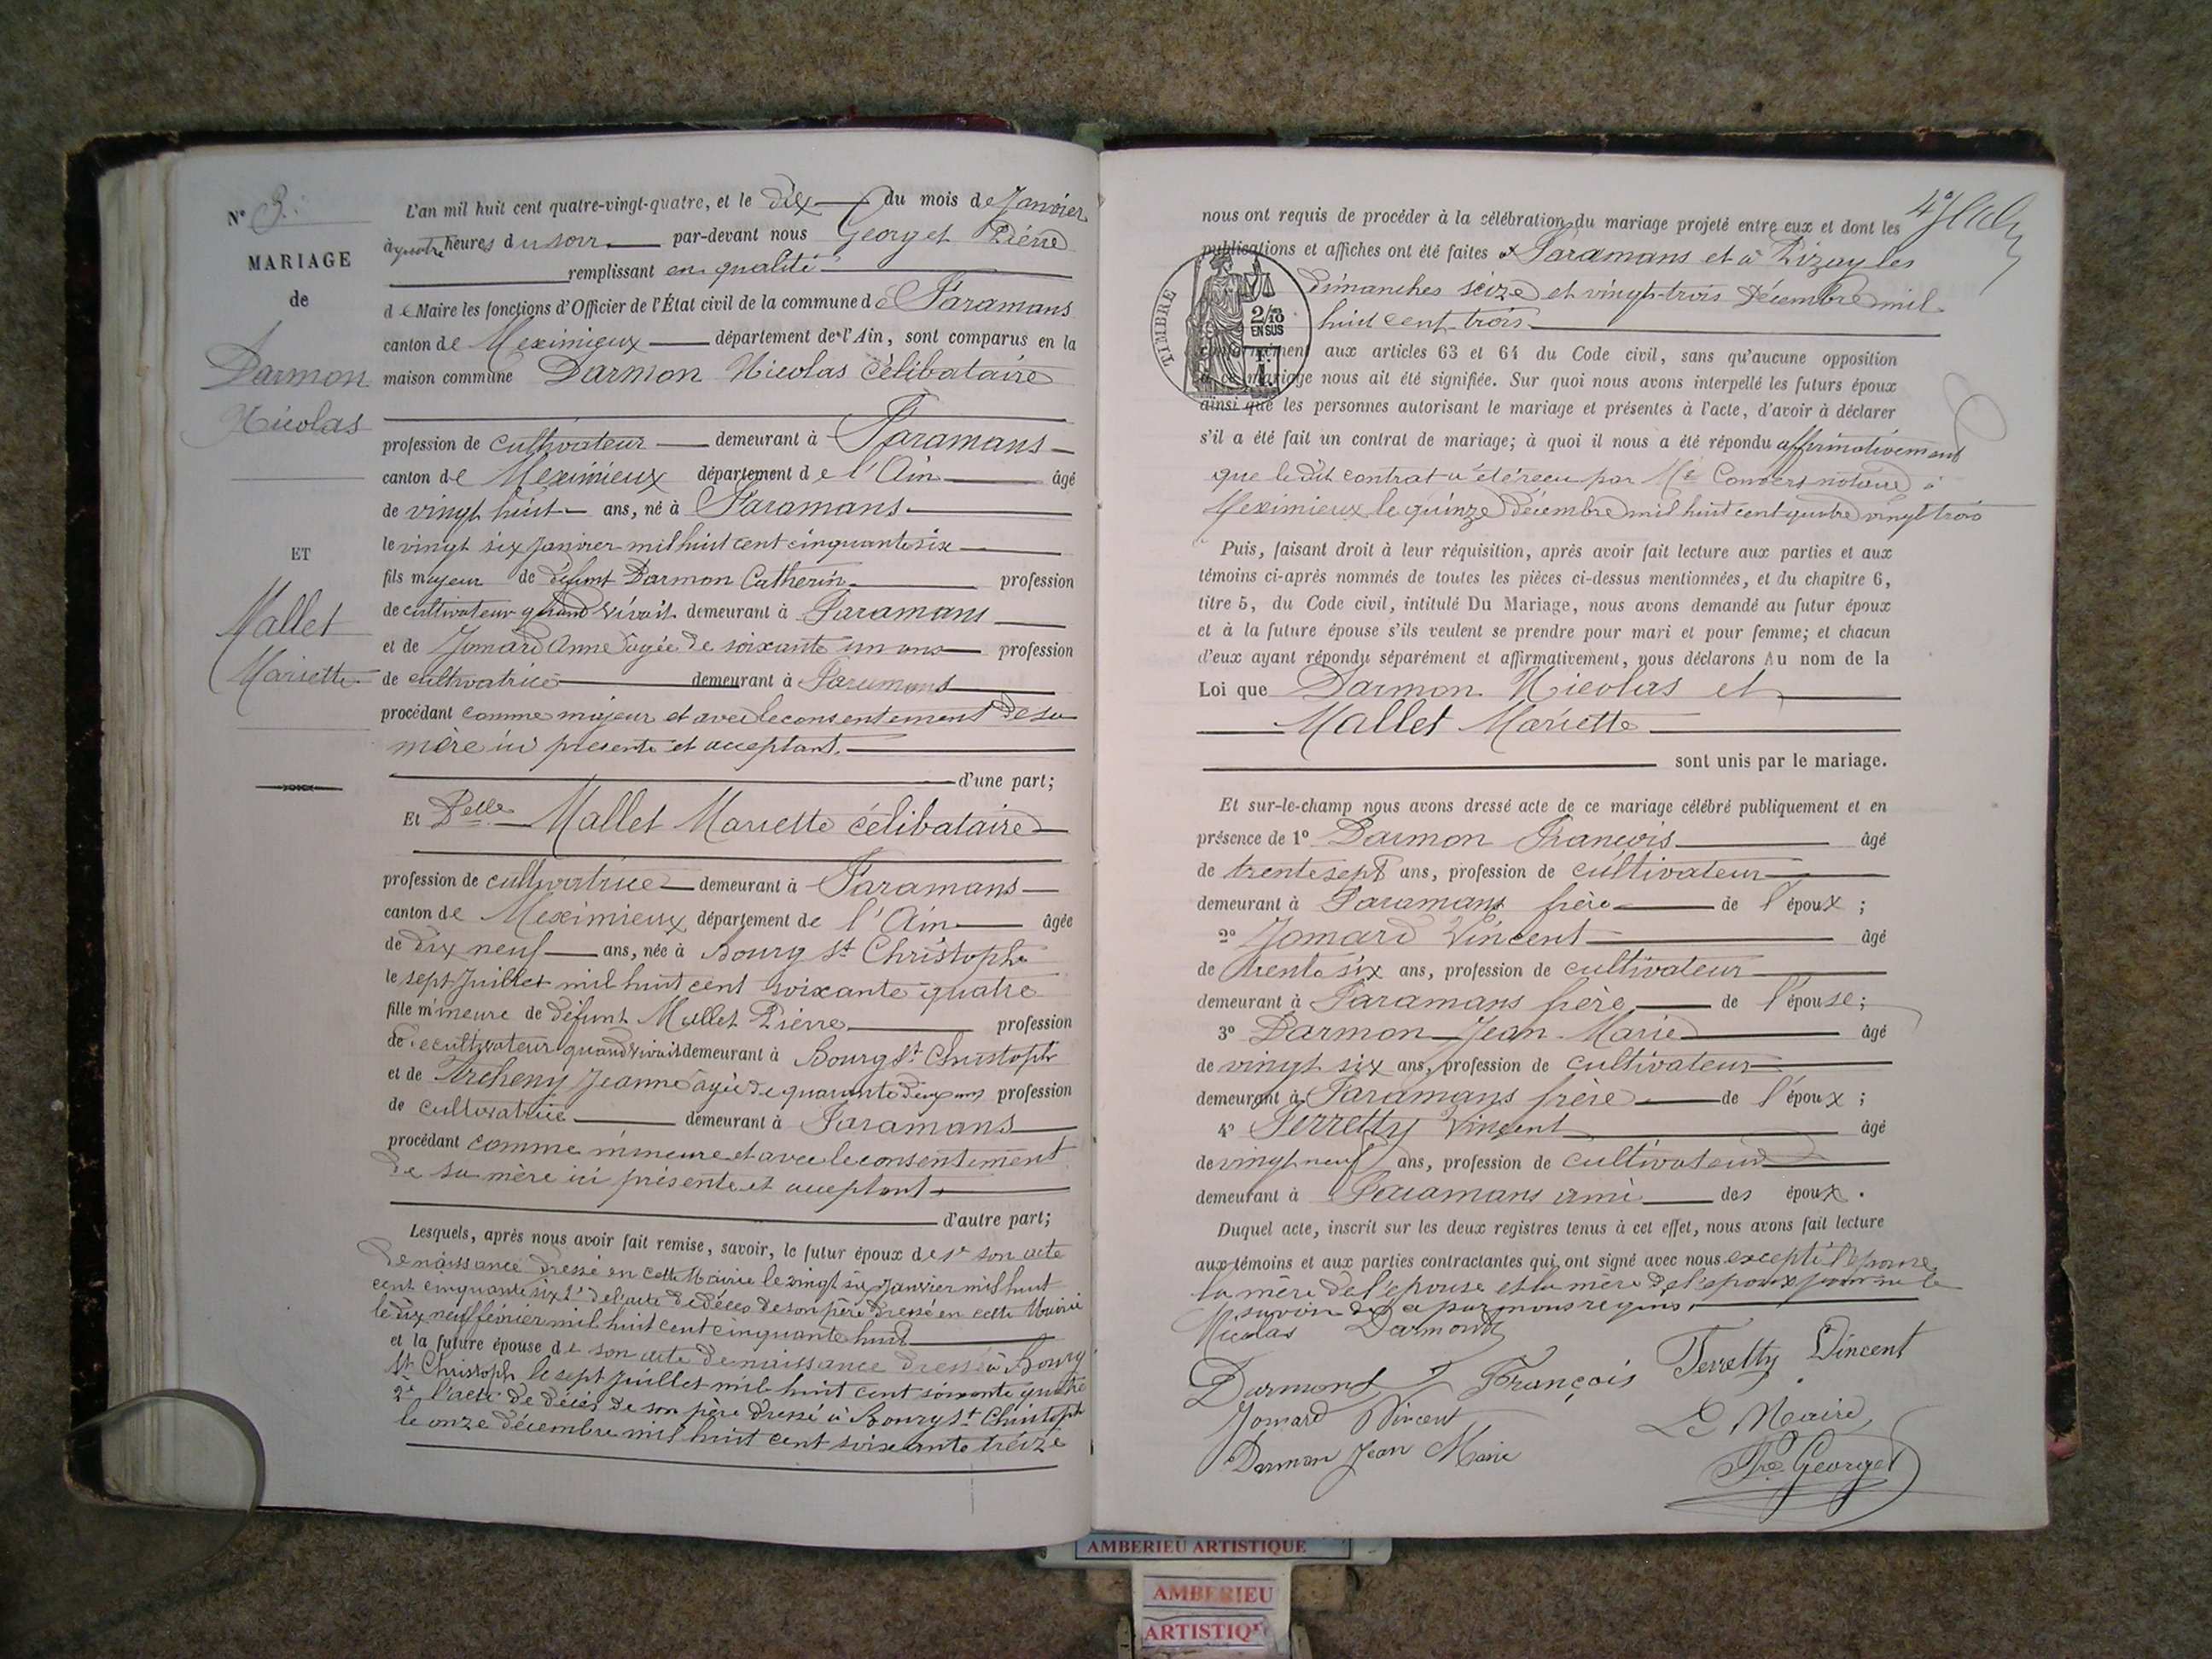 N° 3.
MARIAGE
de
Darmon
Nicolas
ET
Mallet
Mariette
L'an mil huit cent quatre-vingt-quatre, et le dix du mois de Janvier
à quatre heures du soir par-devant nous Georget Pierre
remplissant en qualité
de Maire les fonctions d'Officier de l'État civil de la commune de Faramans
canton de Meximieux département de l'Ain, sont comparus en la
maison commune Darmon Nicolas célibataire
profession de cultivateur demeurant à Faramans
canton de Meximieux département de l'Ain âgé
de vingt huit ans, né à Faramans
le vingt six Janvier mil huit cent cinquante six
fils majeur de défunt Darmon Catherin profession
de cultivateur quand vivait demeurant à Faramans
et de Jomard Anne âgée de soixante un ans profession
de cultivatrice demeurant à Faramans
procédant comme majeur et avec le consentement de sa
mère ici présente et acceptant.
d'une part;
Et Delle Mallet Mariette célibataire
profession de cultivatrice demeurant à Faramans
canton de Meximieux département de l'Ain âgée
de dix neuf ans, née à Bourg St Christophe
le sept Juillet mil huit cent soixante quatre
fille mineure de défunt Mallet Pierre profession
de cultivateur quand vivait demeurant à Bourg St Christoph
et de Jeanne âgée de quarante deux ans profession
de cultivatrice demeurant à Faramans
procédant comme mineure et avec le consentement
de sa mère ici présente et acceptant
d'autre part;
Lesquels, après nous avoir fait remise, savoir, le futur époux de 1° son acte
de naissance dressé en cette Mairie le vingt six Janvier mil huit
cent cinquante six 2° de l'acte de décès de son père dressé en cette Mairie
le dix neuf février mil huit cent cinquante huit
et la future épouse de son acte de naissance dressé à Bourg
St Christoph le sept Juillet mil huit cent soixante quatre
2° l'acte de décès de son père dressé à Bourg St Christoph
le onze décembre mil huit cent soixante treize
nous ont requis de procéder à la célébration du mariage projeté entre eux et dont les
publications et affiches ont été faites à Faramans et à Rizay les
Dimanches seize et vingt-trois Décembre mil
huit cent trois
TIMBRE
2/10
EN SUS
conformément aux articles 63 et 64 du Code civil, sans qu'aucune opposition
à ce mariage nous ait été signifiée. Sur quoi nous avons interpellé les futurs époux
ainsi que les personnes autorisant le mariage et présentes à l'acte, d'avoir à déclarer
s'il a été fait un contrat de mariage; à quoi il nous a été répondu affirmativement
que le dit contrat a été reçu par Me Convers notaire à
Meximieux le quinze Décembre mil huit cent quatre vingt trois
Puis, faisant droit à leur réquisition, après avoir fait lecture aux parties et aux
témoins ci-après nommés de toutes les pièces ci-dessus mentionnées, et du chapitre 6,
titre 5, du Code civil, intitulé Du Mariage, nous avons demandé au futur époux
et à la future épouse s'ils veulent se prendre pour mari et pour femme; et chacun
d'eux ayant répondu séparément et affirmativement, nous déclarons Au nom de la
Loi que Darmon Nicolas et
Mallet Mariette
sont unis par le mariage.
Et sur-le-champ nous avons dressé acte de ce mariage célébré publiquement et en
présence de 1° Darmon François âgé
de trente sept ans, profession de cultivateur
demeurant à Faramans frère de l'époux ;
2° Jomard Vincent âgé
de trente six ans, profession de cultivateur
demeurant à Faramans frère de l'épouse;
3° Darmon Jean Marie âgé
de vingt six ans, profession de cultivateur
demeurant à Faramans frère de l'époux ;
4° Ferretty Vincent âgé
de vingt neuf ans, profession de cultivateur
demeurant à Faramans ami des époux.
Duquel acte, inscrit sur les deux registres tenus à cet effet, nous avons fait lecture
aux témoins et aux parties contractantes qui ont signé avec nous excepté l'épouse
la mère de l'épouse et la mère de l'époux pour ne le
savoir de ce par nous requis.
Nicolas Darmond
Darmond François Ferretty Vincent
Jomard Vincent
Le Maire
Darmon Jean Marie
Georget
AMBERIEU ARTISTIQUE
AMBERIEU
ARTISTIQ